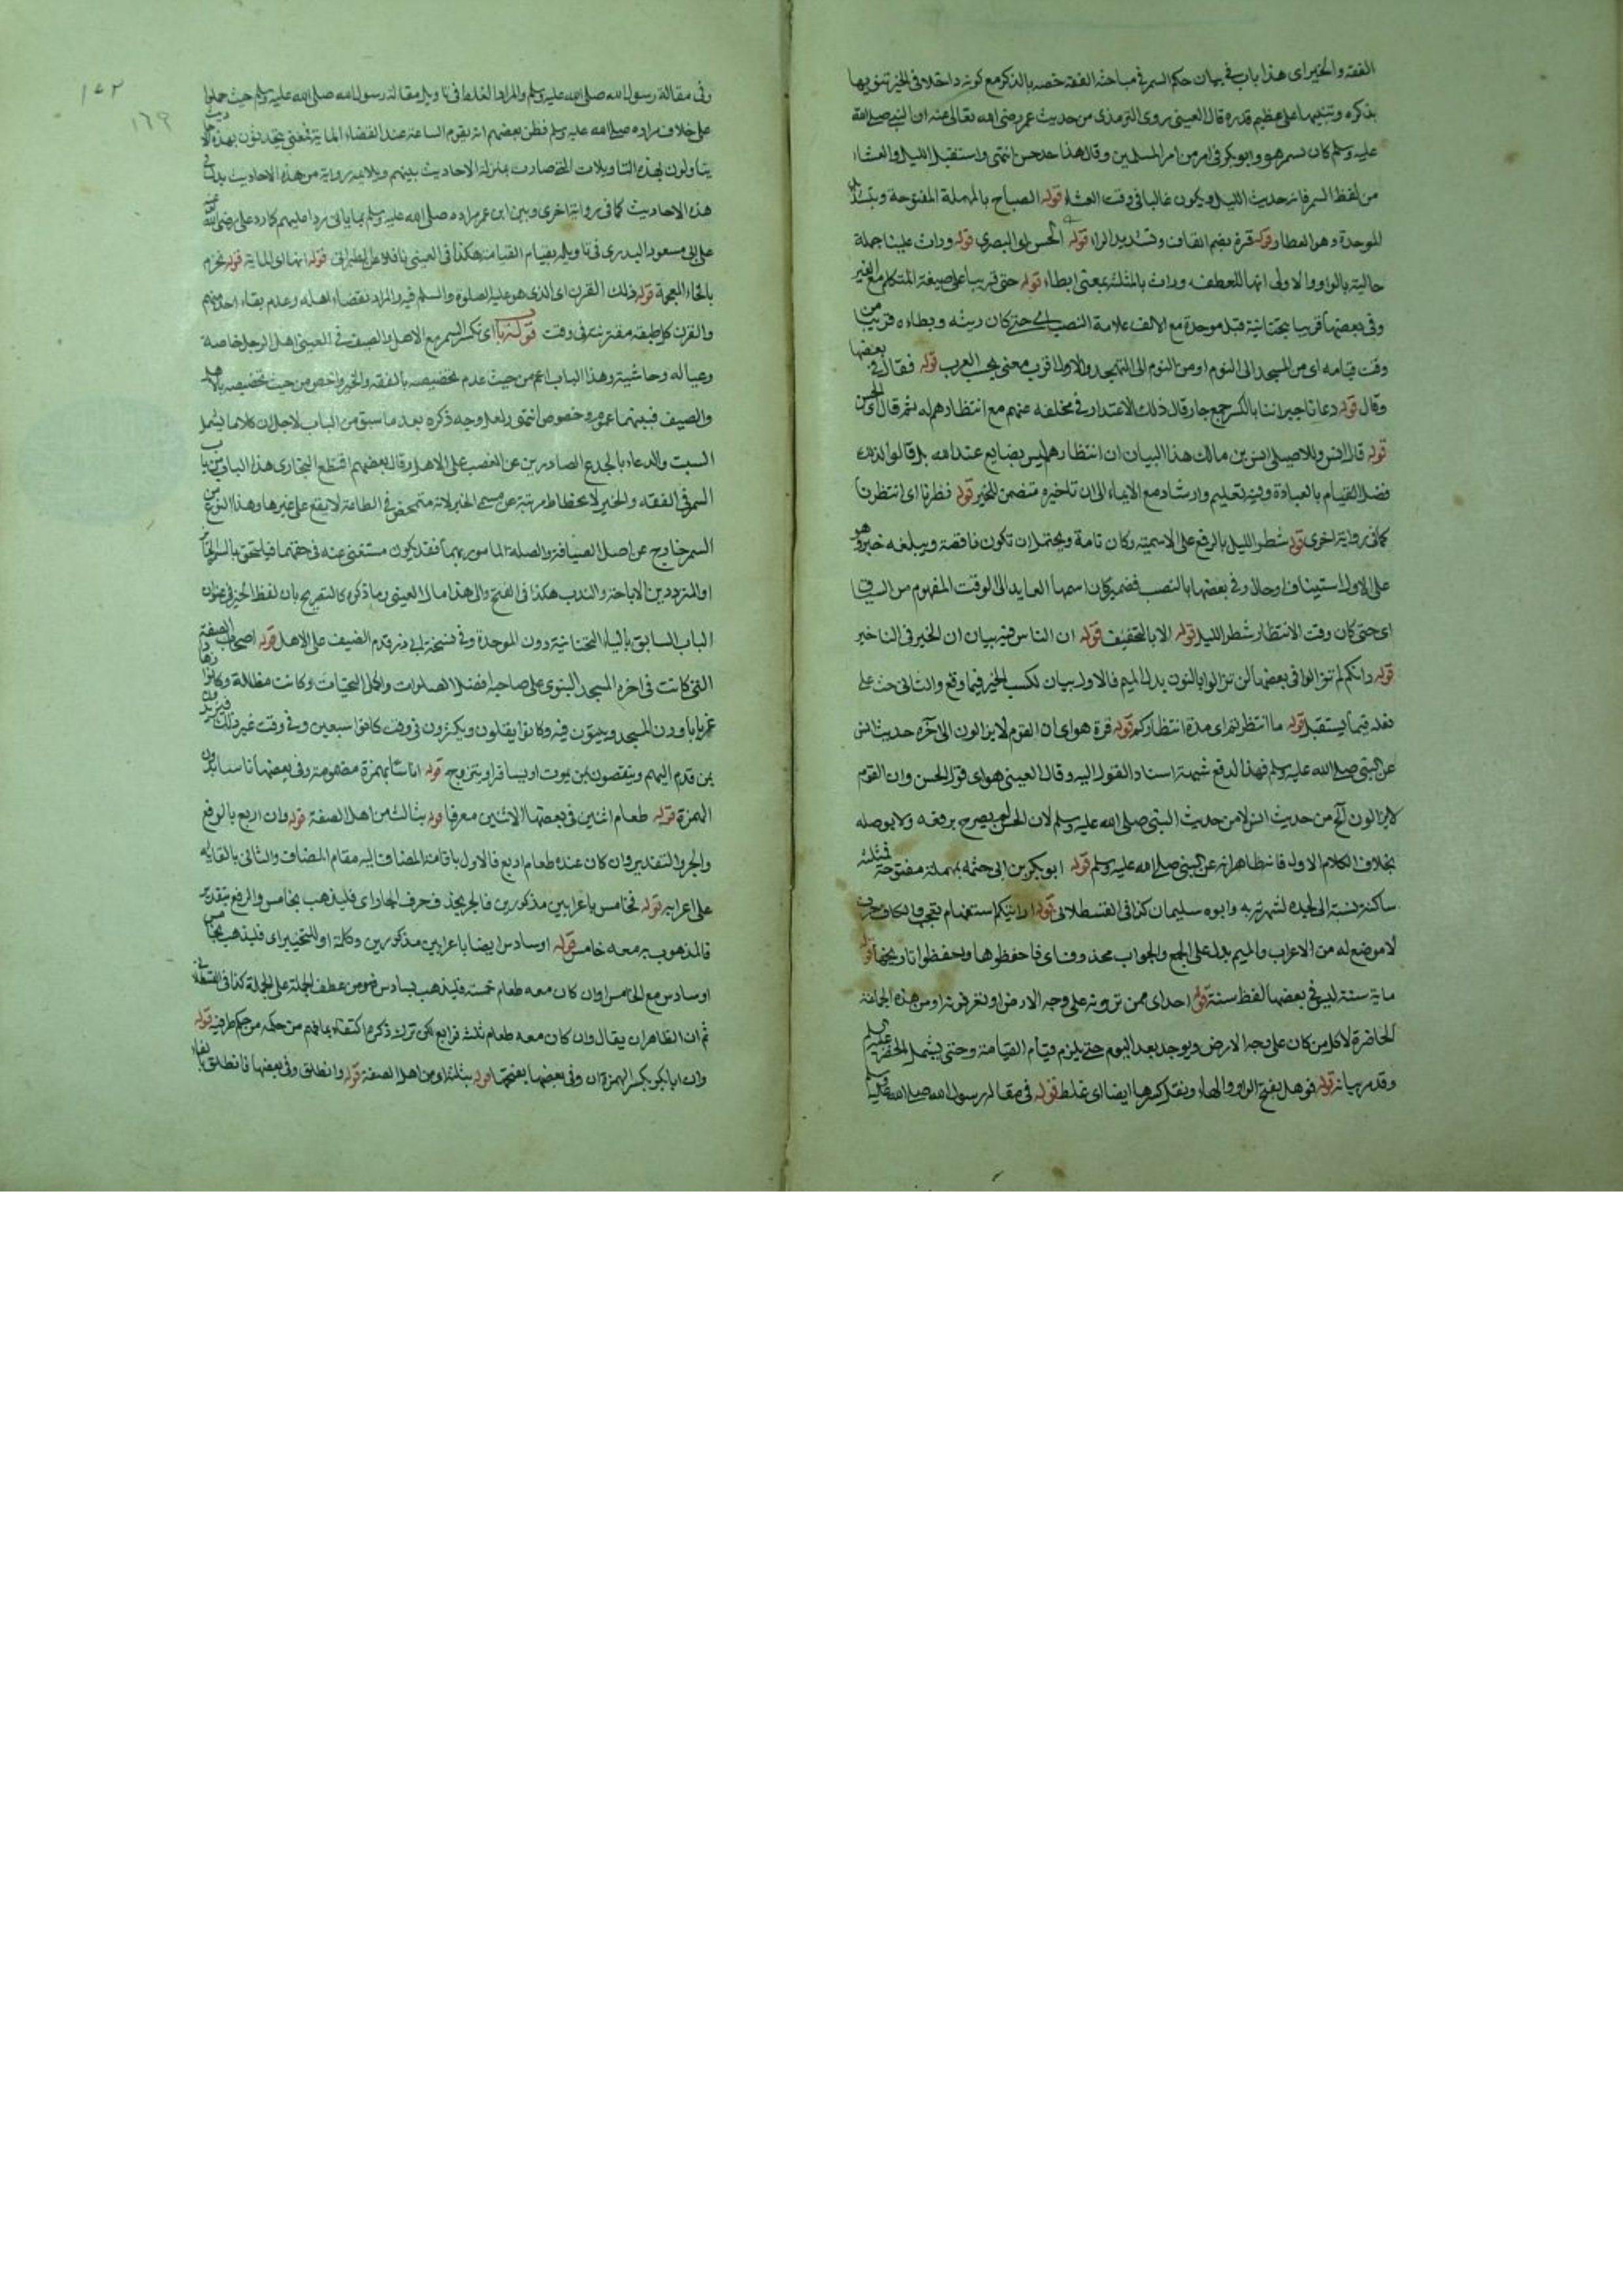 الفقه والخير اى هذا باب فى بيان حكم السمر فى مباحثه الفقه خصه بالذكر مع كونه داخلا فى الخير تنويها
بذكره وتنبيها على عظيم قدره قال العينى روى الترمذى من حديث عمر رضى الله تعالى عنه ان النبى صلى الله
عليه وسلم كان يسمر هو وابو بكر فى امر من امر المسلمين وقال هذا حديث حسن انتهى واستفيد الليل والعشاء
من لفظ السمر فانه حديث الليل ويكون غالبا فى وقت العشاء قوله الصباح بالمهملة المفتوحة وبتشديد
الموحدة وهو العطار قوله قرة بضم القاف وتشديد الراء قوله الحسن اى البصرى قوله وراث علينا جملة
حالية بالواو والاولى انها للعطف وراث بالمثلثة بمعنى ابطاء قوله حتى قريبا على صيغة المتكلم مع الغير
وفى بعضها قريبا بتحتانية قبل موحدة مع الالف علامة النصب اى حتى كان ريثه وبطاءه قريبا من
وقت قيامه اى من المسجد الى النوم او من النوم الى التهجد والاول اقرب معنى بحسب العرب قوله فقال فى بعضها
وقال قوله دعانا جيراننا بالكسر جمع جار قال ذلك الاعتذار فى تخلفه عنهم مع انتظارهم له ثم قال اى الحسن
قوله قال انس وللاصيلى انس بن مالك هذا البيان ان انتظارهم ليس بضايع عند الله بل قالوا لذلك
فضل القيام بالعبادة وفيه تعليم وارشاد مع الايماء الى ان تاخيره متضمن للخير قوله نظرنا اى انتظرنا
كما فى رواية اخرى قوله شطر الليل بالرفع على الاسمية وكان تامة ويحتمل ان تكون ناقصة ويبلغه خبره وهو
على الاول استيناف او حال وفى بعضها بالنصب فضمير كان اسمها العايد الى الوقت المفهوم من السياق
اى حتى كان وقت الانتظار شطر الليل قوله الا بالتخفيف قوله ان الناس فيه بيان ان الخير فى التاخير
قوله وانكم لم تزالوا فى بعضها لن تزالوا بالنون بدل الميم فالاول بيان لكسب الخير فيما وقع والثانى حث على
نفذ فيما يستقبل قوله ما انتظرتم اى مدة انتظاركم قوله قرة هو اى ان القوم لا يزالون الى آخره حديث انس
عن النبى صلى الله عليه وسلم فهذا لدفع شبهة اسناد القول اليه وقال العينى هو اى قول الحسن وان القوم
لا يزالون الخ من حديث انس لا من حديث النبى صلى الله عليه وسلم لان الحسن لم يصرح برفعه ولا بوصله
بخلاف الكلام الاول فانه ظاهر انه عن النبى صلى الله عليه وسلم قوله ابو بكر بن ابى حثمة بمهملة مفتوحة فمثلثة
ساكنة نسبة الى جده لشهرته به وابوه سليمان كذا فى القسطلانى قوله ارايتكم استفهام تعجب والكاف حرف
لا موضع له من الاعراب والميم يدل على الجمع والجواب محذوف اى فاحفظوها واحفظوا تاريخها قوله
ماية سنة ليس فى بعضها لفظ سنة قوله احد اى ممن ترونه على وجه الارض او تعرفونه او من هذه الجماعة
الحاضرة لا كل من كان على وجه الارض ويوجد بعد اليوم حتى يلزم قيام القيامة وحتى يشمل الخضر عليه السلم
وقد مر بيانه قوله فوهل بفتح الواو والهاء ونقل كسرها ايضا اى غلط قوله فى مقالة رسول الله صلى الله عليه وسلم
١٥٢
١٦٩
وفى مقالة رسول الله صلى الله عليه وسلم والمراد الغلط فى تاويل مقالة رسول الله صلى الله عليه وسلم حيث حملوا
على خلاف مراده صلى الله عليه وسلم فظن بعضهم انه يقوم الساعة عند انقضاء الماية فمعنى يتحدثون بهذه الاحاديث
يتاولون بهذه التاويلات التى صارت بمنزلة الاحاديث بينهم ويلايمه رواية من هذه الاحاديث بدل فى
هذه الاحاديث كما فى رواية اخرى وبين ابن عمر مراده صلى الله عليه وسلم بما ياتى ردا عليهم كما رد على رضى الله عنه
على ابى مسعود البدرى فى تاويله بقيام القيامة هكذا فى العينى ناقلا عن الطبرانى قوله انها اى الماية قوله تخرم
بالخاء المعجمة قوله ذلك القرن اى الذى هو عليه الصلوة والسلم فيه والمراد انقضاء اهله وعدم بقاء احد منهم
والقرن كل طبقة مقترنة فى وقت قوله باب اى ذكر السمر مع الاهل والضيف فى العينى اهل الرجل خاصة
وعياله وحاشيته وهذا الباب اعم من حيث عدم تخصيصه بالفقه والخير واخص من حيث تخصيصه بالاهل
والضيف فبينهما عموم وخصوص انتهى ولعل وجه ذكره بعد ما سبق من الباب لاجل ان كلاما يشمل
السب والدعاء بالجدع الصادرين عن الغضب على الاهل وقال بعضهم اقتطع البخارى هذا الباب من باب
السمر فى الفقه والخير لانحطاط مرتبته عن مسمى الخير لانه متمحض فى الطاعة لا يقع على غيرها وهذا النوع من
السمر خارج عن اصل الضيافة والصلة المامور بهما فقد يكون مستغنى عنه فى حقهما فيلتحق بالسمر الجائز
او المتردد بين الاباحة والندب هكذا فى الفتح والى هذا مال العينى وما ذكره كالتصريح بان لفظ الخير فى عنوان
الباب السابق بالياء التحتانية دون الموحدة وفى نسخة ابى ذر قدم الضيف على الاهل قوله اصحاب الصفة
التى كانت فى اخرة المسجد النبوى على صاحبه افضل الصلوات واكمل التحيات وكانت مظللة وكانوا زهادا
غربا باوون المسجد ويبيتون فيه وكانوا يقلون ويكثرون فى وقت كانوا سبعين وفى وقت غير ذلك فيزيدون
بمن قدم اليهم وينقصون بمن يموت او يسافر او يتزوج قوله اناسا بهمزة مضمومة وفى بعضها ناسا بدون
الهمزة قوله طعام اثنين فى بعضها الاثنين معرفا قوله بثالث من اهل الصفة قوله وان اربع بالرفع
والجر والتقدير وان كان عنده طعام اربع فالاول باقامة المضاف اليه مقام المضاف والثانى بالقايه
على اعرابه قوله فخامس باعرابين مذكورين فالجر بحذف حرف الجار اى فليذهب بخامس والرفع بتقدير
فالمذهوب به معه خامس قوله او سادس ايضا باعرابين مذكورين وكلمة او للتخيير اى فليذهب بخامس
او سادس مع الخامس او ان كان معه طعام خمسة فليذهب بسادس فهو من عطف الجملة على الجملة كذا فى القسطلانى
ثم ان الظاهر ان يقال وان كان معه طعام ثلثة فرابع لكن ترك ذكره اكتفاء بما فهم من حكمه من حكم طرفيه قوله
وان ابا بكر بكسر الهمزة ان وفى بعضها بفتحها قوله بثلثة اى من اهل الصفة قوله وانطلق وفى بعضها فانطلق بالفاء